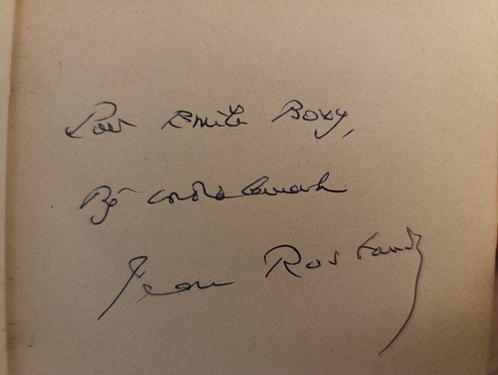 Pour Emile Bovy,
cordialement
Jean Rostand